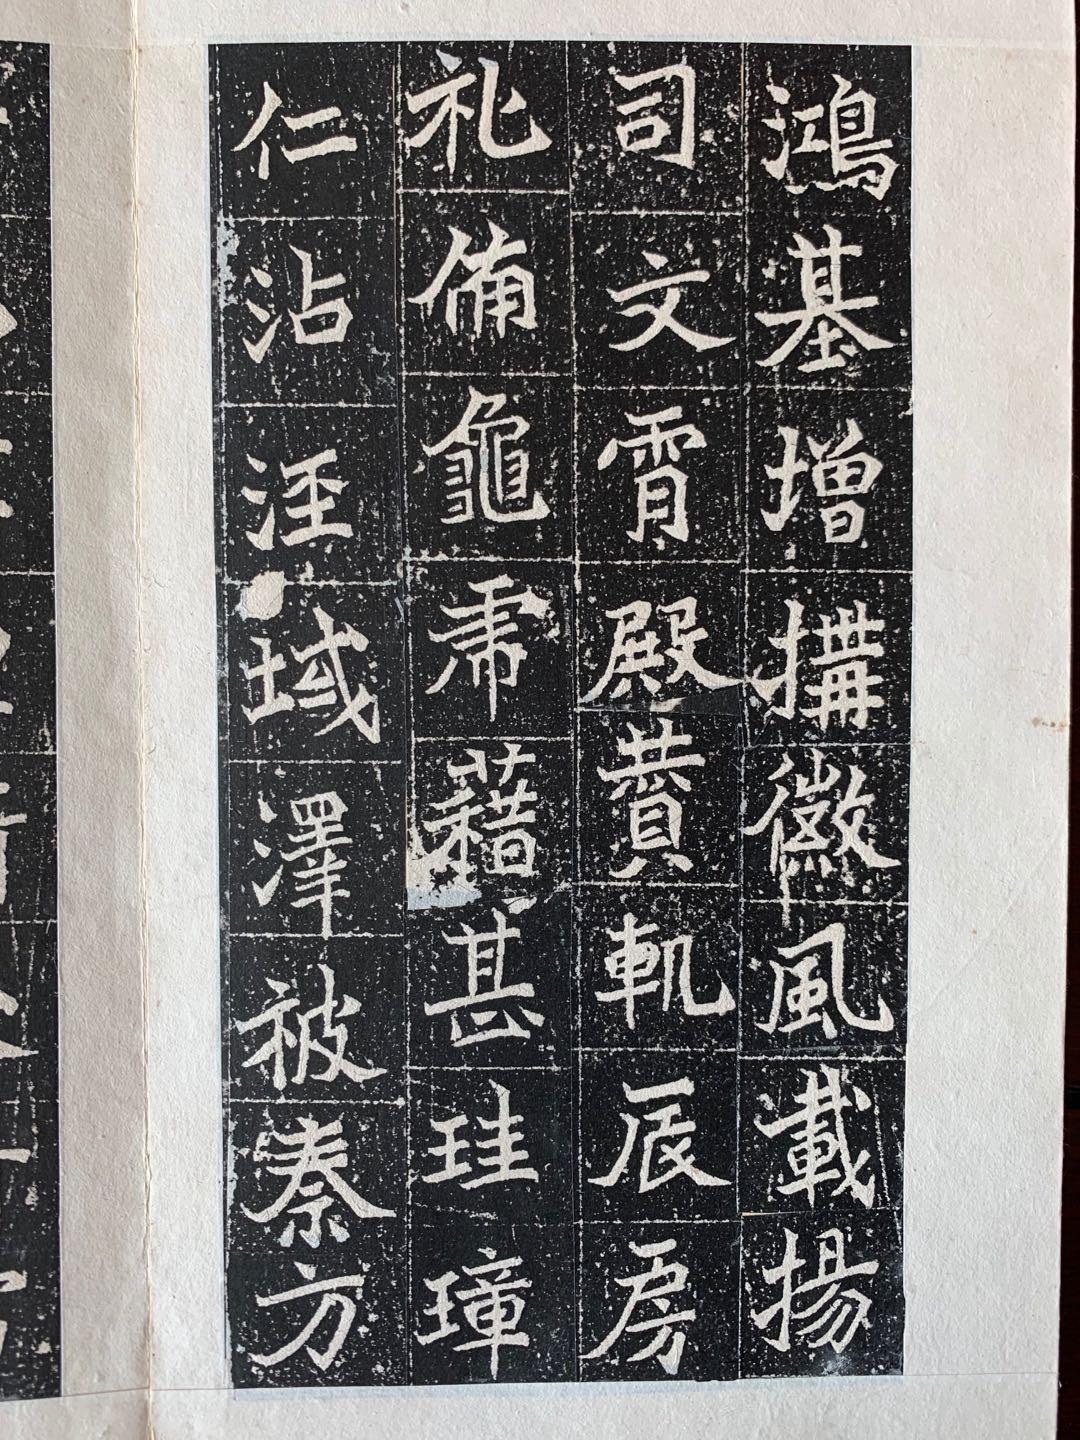 鴻基增構徽風載揚
司文霄殿賛軌辰房
礼備龜虎藉甚珪璋
仁沾涇域澤被秦方